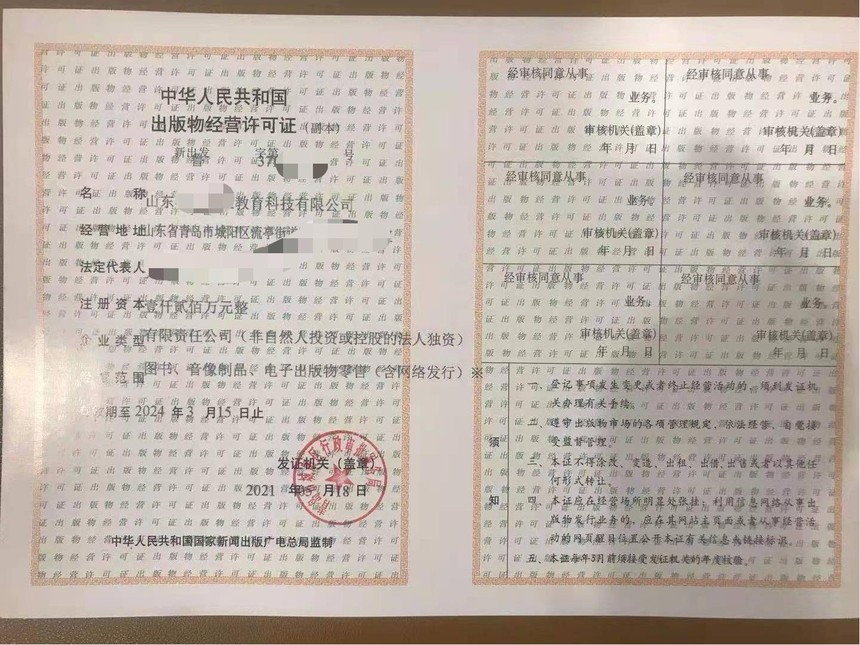 中华人民共和国
出版物经营许可证（副本）
新出发 鲁 字第 370 号
名 称 山东 教育科技有限公司
经营地址 山东省青岛市城阳区流亭街道
法定代表人
注册资本 壹仟贰佰万元整
企业类型 有限责任公司（非自然人投资或控股的法人独资）
范围 图书、音像制品、电子出版物零售（含网络发行）※
期至 2024 年 3 月 15 日止
发证机关（盖章）
2021 年 月 18 日
中华人民共和国国家新闻出版广电总局监制
经审核同意从事
业务。
审核机关(盖章)
年 月 日
经审核同意从事
业务。
审核机关(盖章)
年 月 日
经审核同意从事
业务。
审核机关(盖章)
年 月 日
经审核同意从事
业务。
审核机关(盖章)
年 月 日
经审核同意从事
业务。
审核机关(盖章)
年 月 日
经审核同意从事
业务。
审核机关(盖章)
年 月 日
须知
一、登记事项发生变更或者终止经营活动的，须到发证机
关办理有关手续。
二、遵守出版物市场的各项管理规定，依法经营，自觉接
受监督管理。
三、本证不得涂改、变造、出租、出借、出售或者以其他任
何形式转让。
四、本证应在经营场所明显处张挂；利用信息网络从事出
版物发行业务的，应在其网站主页面或者从事经营活
动的网页醒目位置公开本证有关信息或链接标识。
五、本证每年3月前须接受发证机关的年度核验。